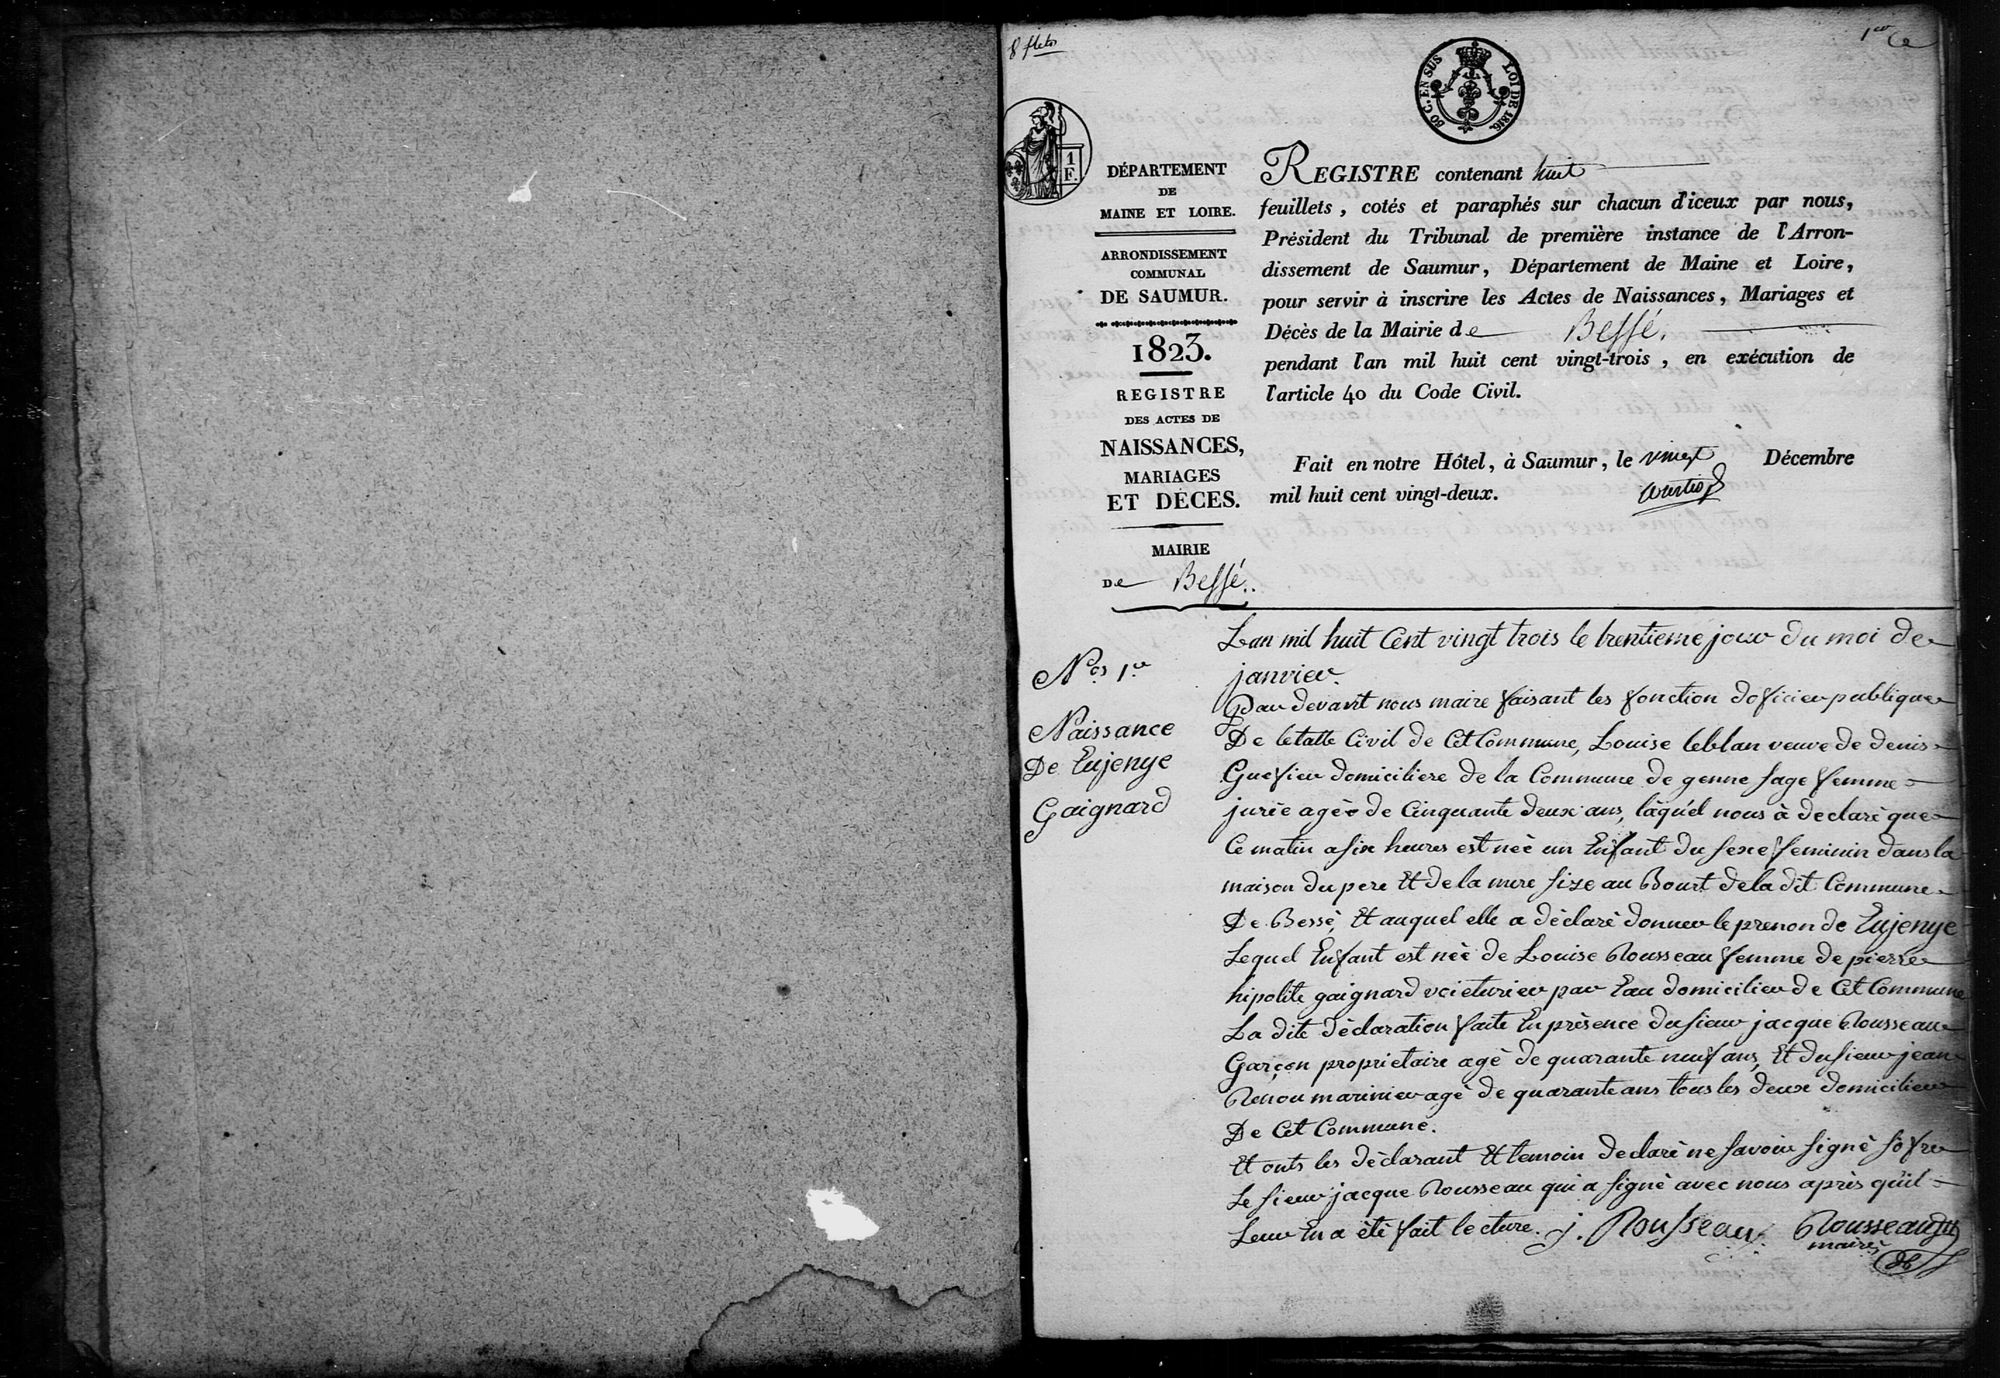 8 f.lets
1er
60 C. EN SUS
LOI DE 1816.
1
F.
DÉPARTEMENT
DE
MAINE ET LOIRE.
ARRONDISSEMENT
COMMUNAL
DE SAUMUR.
1823.
REGISTRE
DES ACTES DE
NAISSANCES,
MARIAGES
ET DÉCES.
MAIRIE
De Bessé.
REGISTRE contenant huit
feuillets, cotés et paraphés sur chacun d'iceux par nous,
Président du Tribunal de première instance de l'Arron-
dissement de Saumur, Département de Maine et Loire,
pour servir à inscrire les Actes de Naissances, Mariages et
Décès de la Mairie de Bessé.
pendant l'an mil huit cent vingt-trois, en exécution de
l'article 40 du Code Civil.
Fait en notre Hôtel, à Saumur, le vingt Décembre
mil huit cent vingt-deux.
Nos 1er
Naissance
De Eujenye
Gaignard
Lan mil huit Cent vingt trois le trentieme jour du moi de
janvier.
Par devant nous maire faisant les fonction doficier publique
De letatte Civil de Cet Commune, Louise leblan veuve de denis
Guefier domiciliere de la Commune de genne sage femme
jurée agèe de Cinquante deux ans, làquél nous à declarè que
Ce matin a six heures est nèe un Enfant du sexe feminin dans la
maison du pere Et de la mere size au Bourt de la dit Commune
De Bessè, Et auquel elle a dèclarè donner le prenon de Eujenye
Lequel Enfant est nèe de Louise Rousseau femme de pierre
hipolite gaignard voieturier par Eau domicilier de Cet Commune
La dite dèclaration faite En prèsence du sieur jacque Rousseau
Garçon proprietaire agè de quarante neuf ans, Et du sieur jean
Renou marinier agè de quarante ans tous les deux domicilier
De Cet Commune.
Et onts les dèclarant Et temoin declarè ne savoir signè sôfre
Le sieur jacque Rousseau qui a signè avec nous après qùil
Leur En a étè fait lecture. j. Rousseau Rousseau
maire